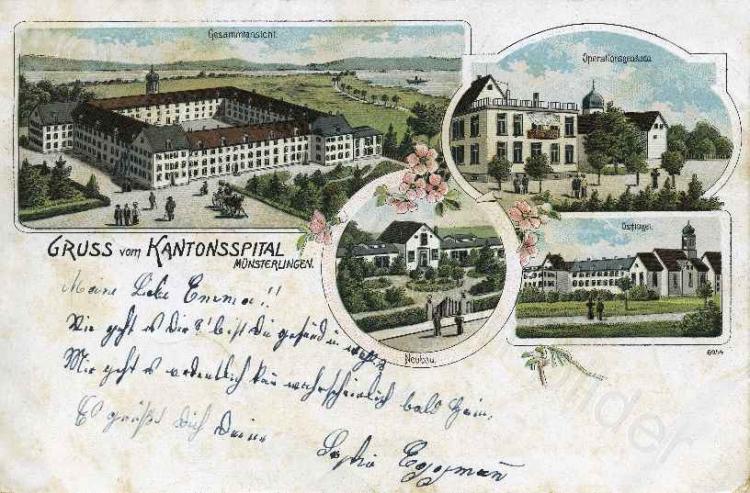 Gesammtansicht.
Operationsgebäude.
GRUSS vom KANTONSSPITAL
MÜNSTERLINGEN.
Ostflügel.
Neubau.
Meine Liebe Emma!!
Wie geht es Dir? bist Du gesund u.
Mir geht es ordentlich kan wahrscheinlich bald Heim.
Es grüßt Dich Deine
Sophie Eggmann